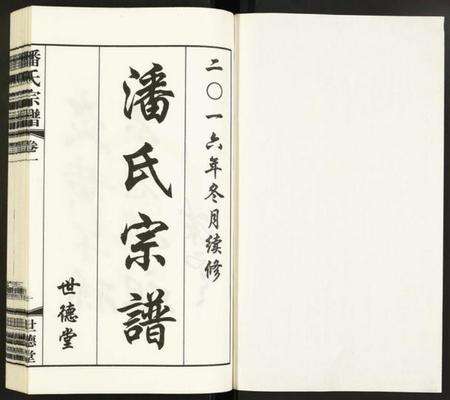 二〇一六年冬月续修
潘氏宗譜
世德堂
潘氏宗譜
卷一
世德堂